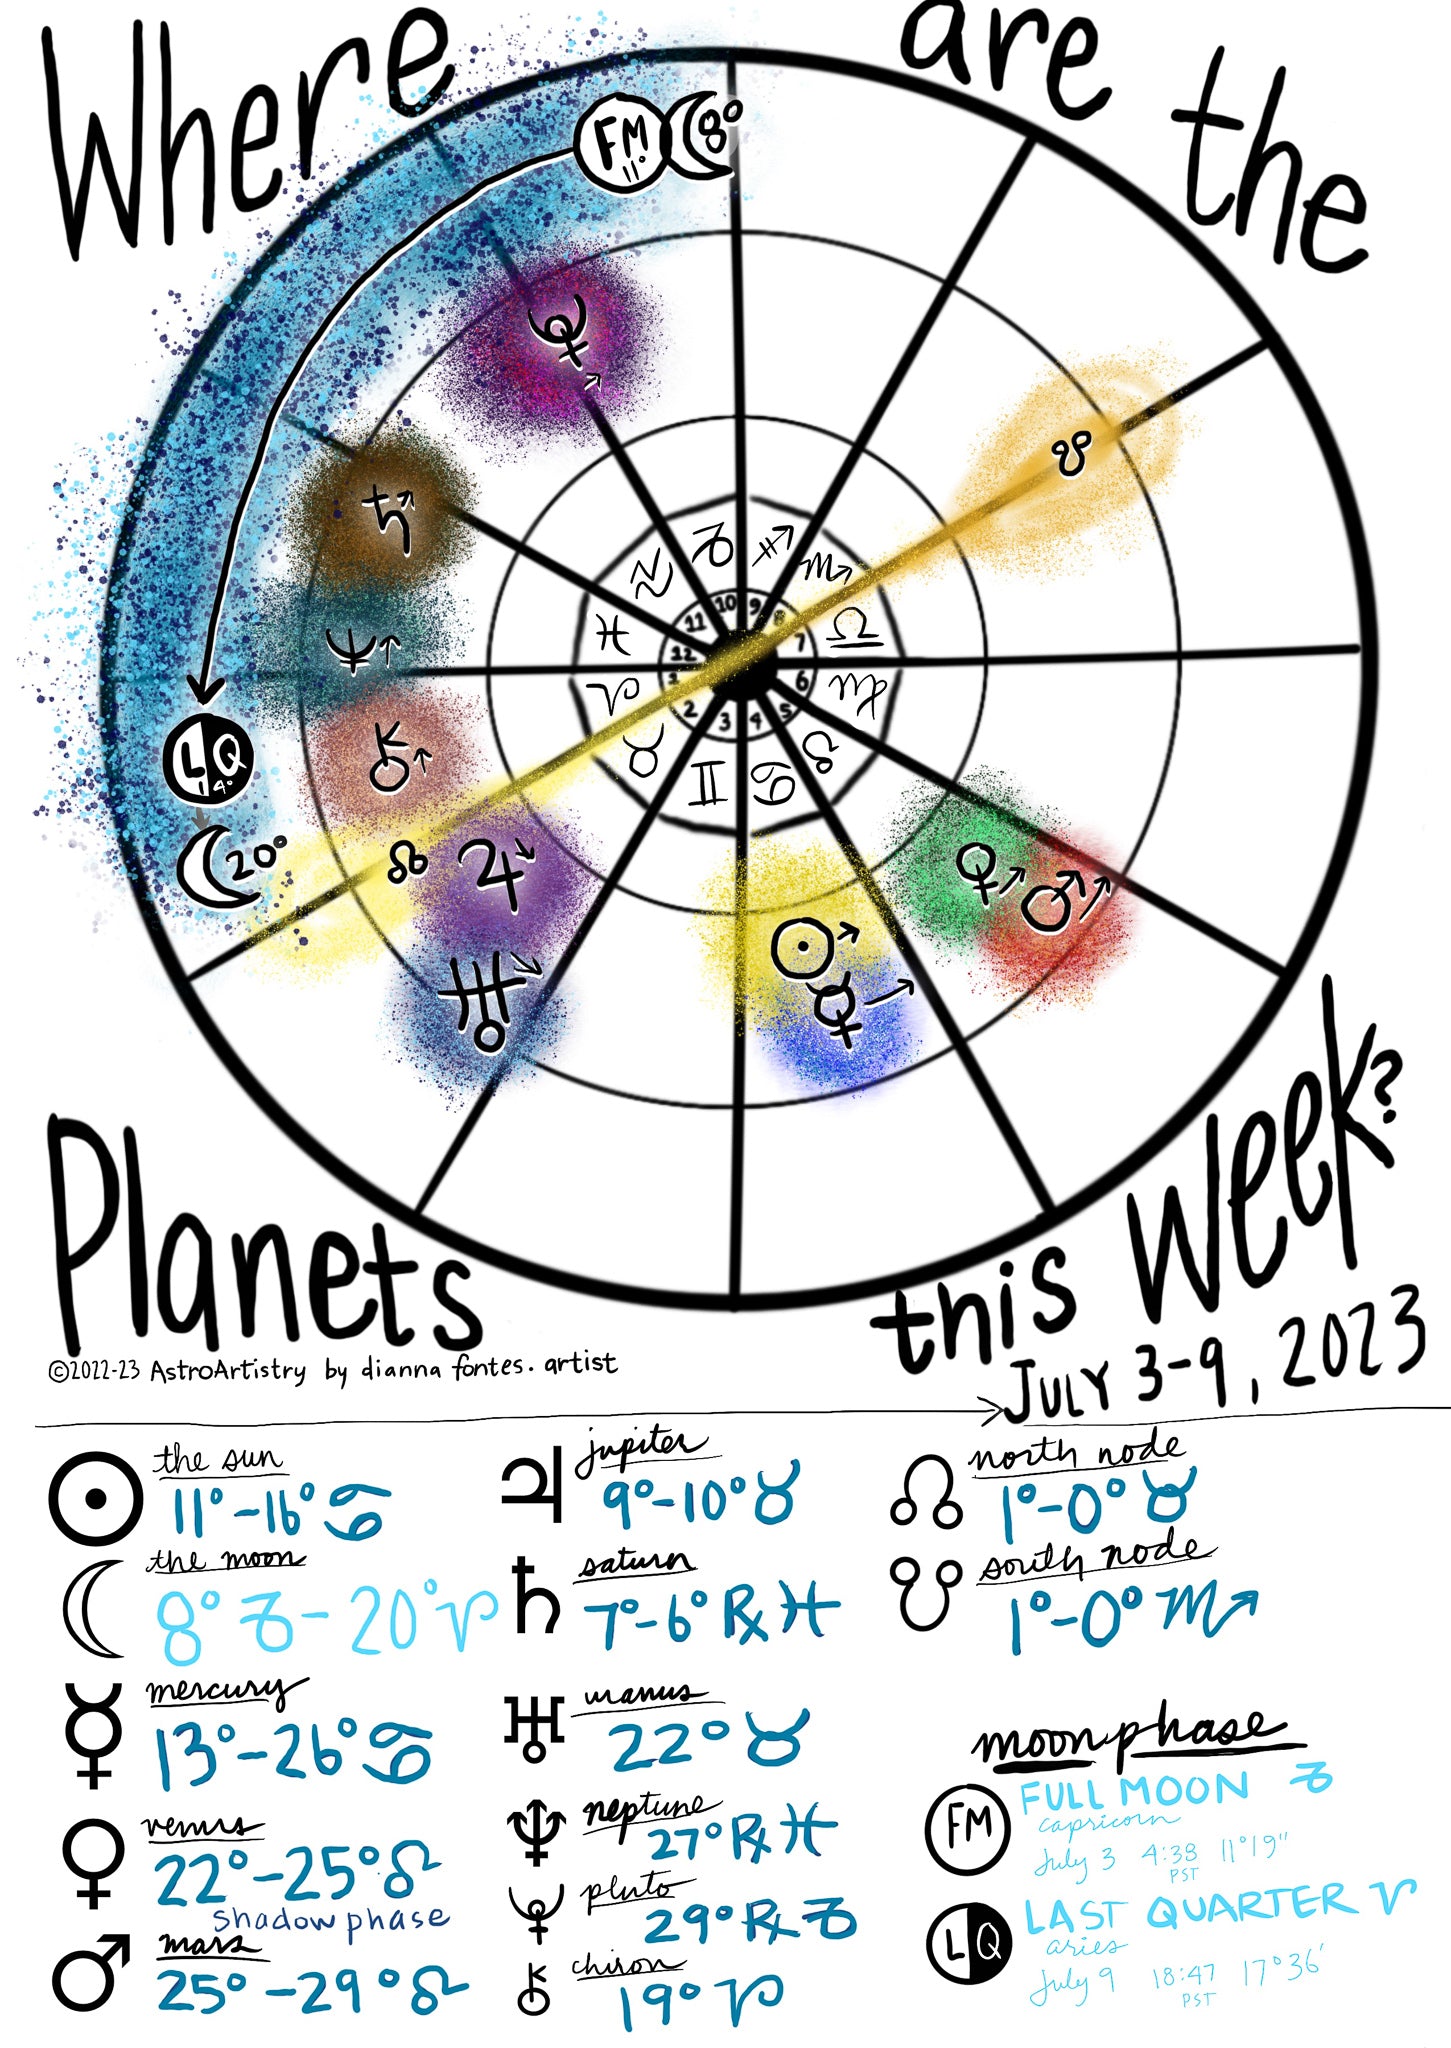 Where are the
FM 11° ☾ 8°
♇ ↗
☋
♄ ↗
♑ ♐ ♏
♒
♓ ♎
♈ ♍
♉ ♌
♊ ♋
10 9 8
11 7
12 6
1 2 3 4 5
♆ ↑
LQ
⚷ ↑
☾ 20°
☊ ♃ ↘
♀ ↗ ♂ ↗
♅ ↘
☉ ↗
☿ ↗
Planets this Week?
©2022-23 AstroArtistry by dianna fontes. artist
July 3-9, 2023
☉ the sun
11°-16° ♋
☾ the moon
8° ♑ - 20° ♈
☿ mercury
13°-26° ♋
♀ venus
22°-25° ♌
shadow phase
♂ mars
25° -29° ♌
♃ jupiter
9°-10° ♉
♄ saturn
7°-6° ℞ ♓
♅ uranus
22° ♉
♆ neptune
27° ℞ ♓
♇ pluto
29° ℞ ♑
⚷ chiron
19° ♈
☊ north node
1°-0° ♉
☋ south node
1°-0° ♏
moonphase
FM FULL MOON ♑
capricorn
July 3 4:38 11°19"
PST
LQ LAST QUARTER ♈
aries
July 9 18:47 17°36'
PST